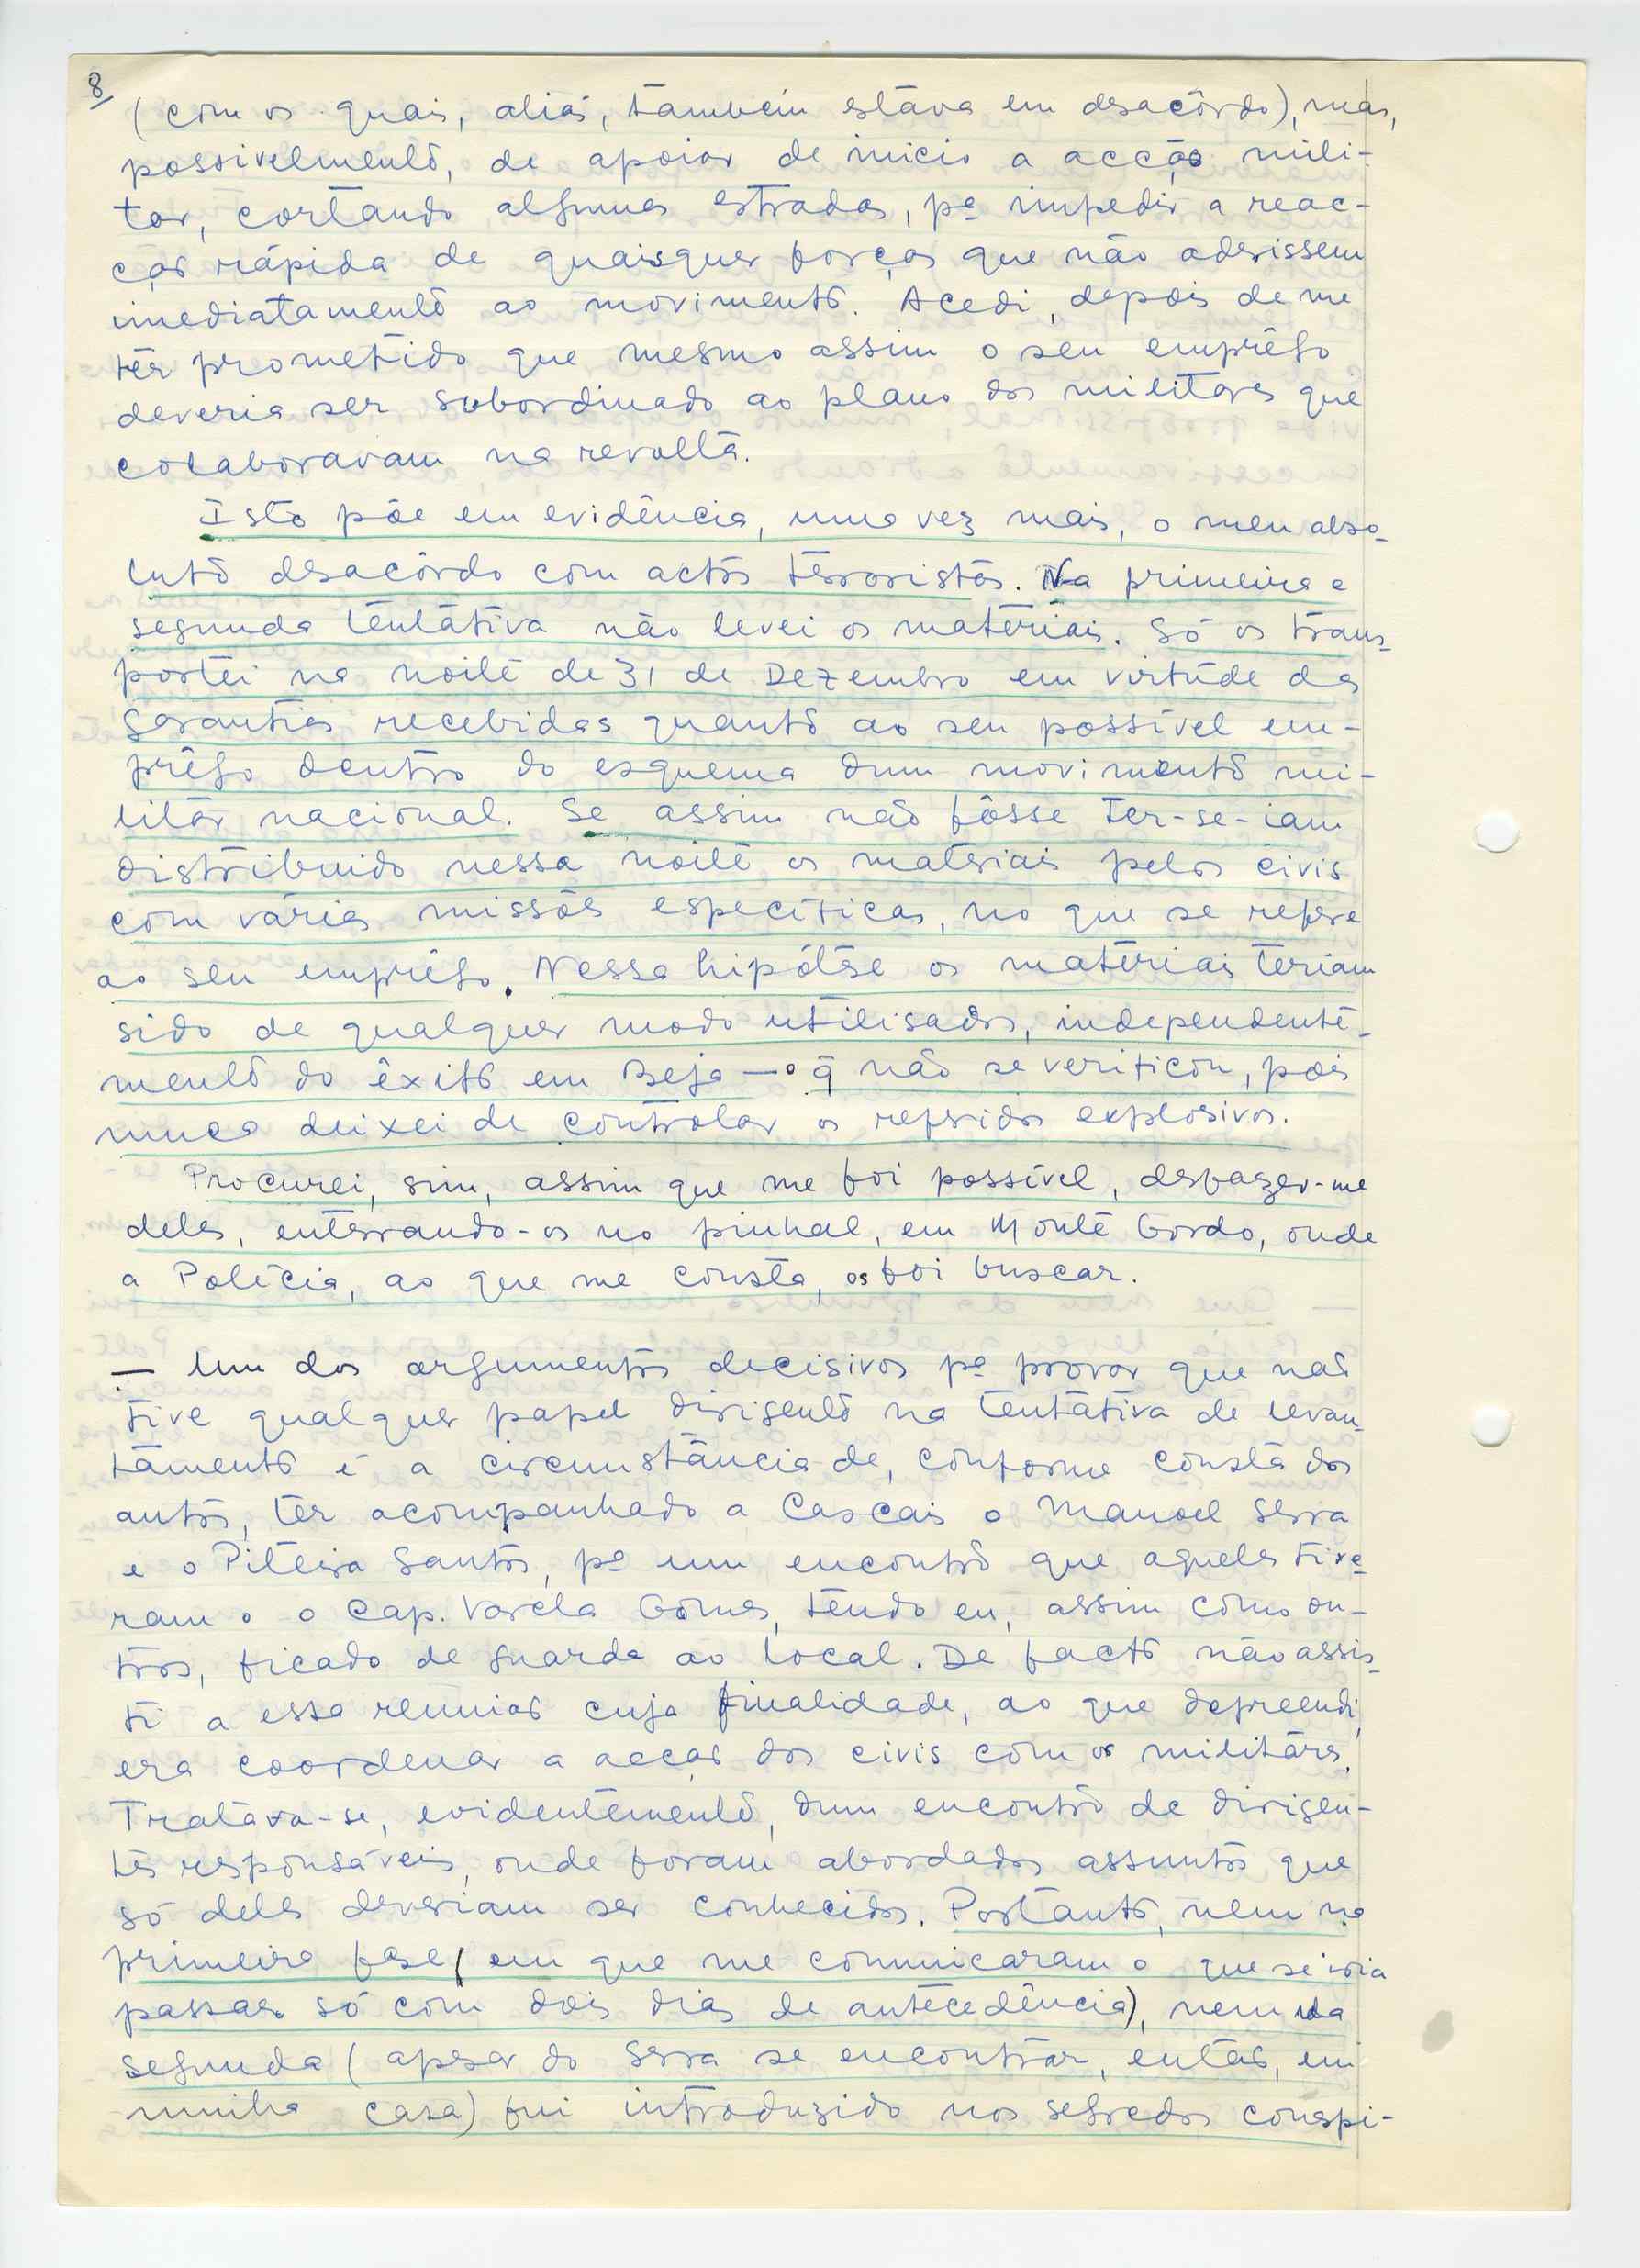 8
(com os quais, aliás, também estava em desacôrdo), mas,
possivelmente, de apoiar de início a acção mili-
tar, cortando algumas estradas, pª impedir a reac-
ção rápida de quaisquer forças que não aderissem
imediatamente ao movimento. Acedi, depois de me
têr prometido que mesmo assim o seu emprêgo
deveria ser subordinado ao plano dos militares que
colaboravam na revolta.
Isto põe em evidência, uma vez mais, o meu abso-
luto desacôrdo com actos terroristas. Na primeira e
segunda tentativa não levei os materiais. Só os trans-
portei na noite de 31 de Dezembro em virtude das
garantias recebidas quanto ao seu possível em-
prêgo dentro do esquema dum movimento mi-
litar nacional. Se assim não fôsse ter-se-iam
distribuido nessa noite os materiais pelos civis
com várias missões específicas, no que se refere
ao seu emprêgo. Nessa hipótese os materiais teriam
sido de qualquer modo utilisados, independente-
mente do êxito em Beja — o q̃ não se verificou, pois
nunca deixei de controlar os referidos explosivos.
Procurei, sim, assim que me foi possível, desfazer-me
deles, enterrando-os no pinhal, em Monte Gordo, onde
a Polícia, ao que me consta, os foi buscar.
— Um dos argumentos decisivos pª provar que não
tive qualquer papel dirigente na tentativa de levan-
tamento é a circunstância de, conforme consta dos
autos, ter acompanhado a Cascais o Manoel Serra
e o Piteira Santos, pª um encontro que aqueles tive-
ram c o Cap. Varela Gomes, tendo eu, assim como ou-
tros, ficado de guarda ao local. De facto não assis-
ti a essa reunião cuja finalidade, ao que depreendi,
era coordenar a acção dos civis com os militares.
Tratava-se, evidentemente, dum encontro de dirigen-
tes responsáveis, onde foram abordados assuntos que
só deles deveriam ser conhecidos. Portanto, nem na
primeira fase (em que me comunicaram o que se iria
passar só com dois dias de antecedência), nem na
segunda (apesar do Serra se encontrar, então, em
minha casa) fui introduzido nos segredos conspi-